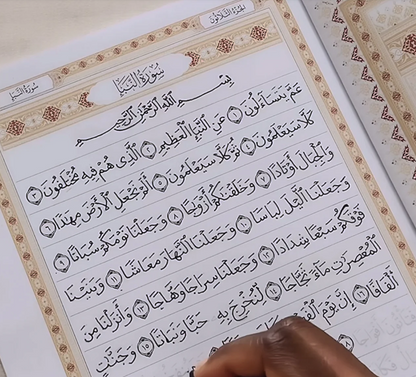 الجزء الثلاثون
سورة النبإ
سورة النبإ
بسم الله الرحمن الرحيم
عم يتساءلون ١ عن النبإ العظيم ٢ الذي هم فيه مختلفون ٣
كلا سيعلمون ٤ ثم كلا سيعلمون ٥ ألم نجعل الأرض مهادا ٦
والجبال أوتادا ٧ وخلقناكم أزواجا ٨ وجعلنا نومكم سباتا ٩
وجعلنا اليل لباسا ١٠ وجعلنا النهار معاشا ١١ وبنينا
فوقكم سبعا شدادا ١٢ وجعلنا سراجا وهاجا ١٣ وأنزلنا من
المعصرات ماء ثجاجا ١٤ لنخرج به حبا ونباتا ١٥ وجنت
ألفافا ١٦ إن يوم